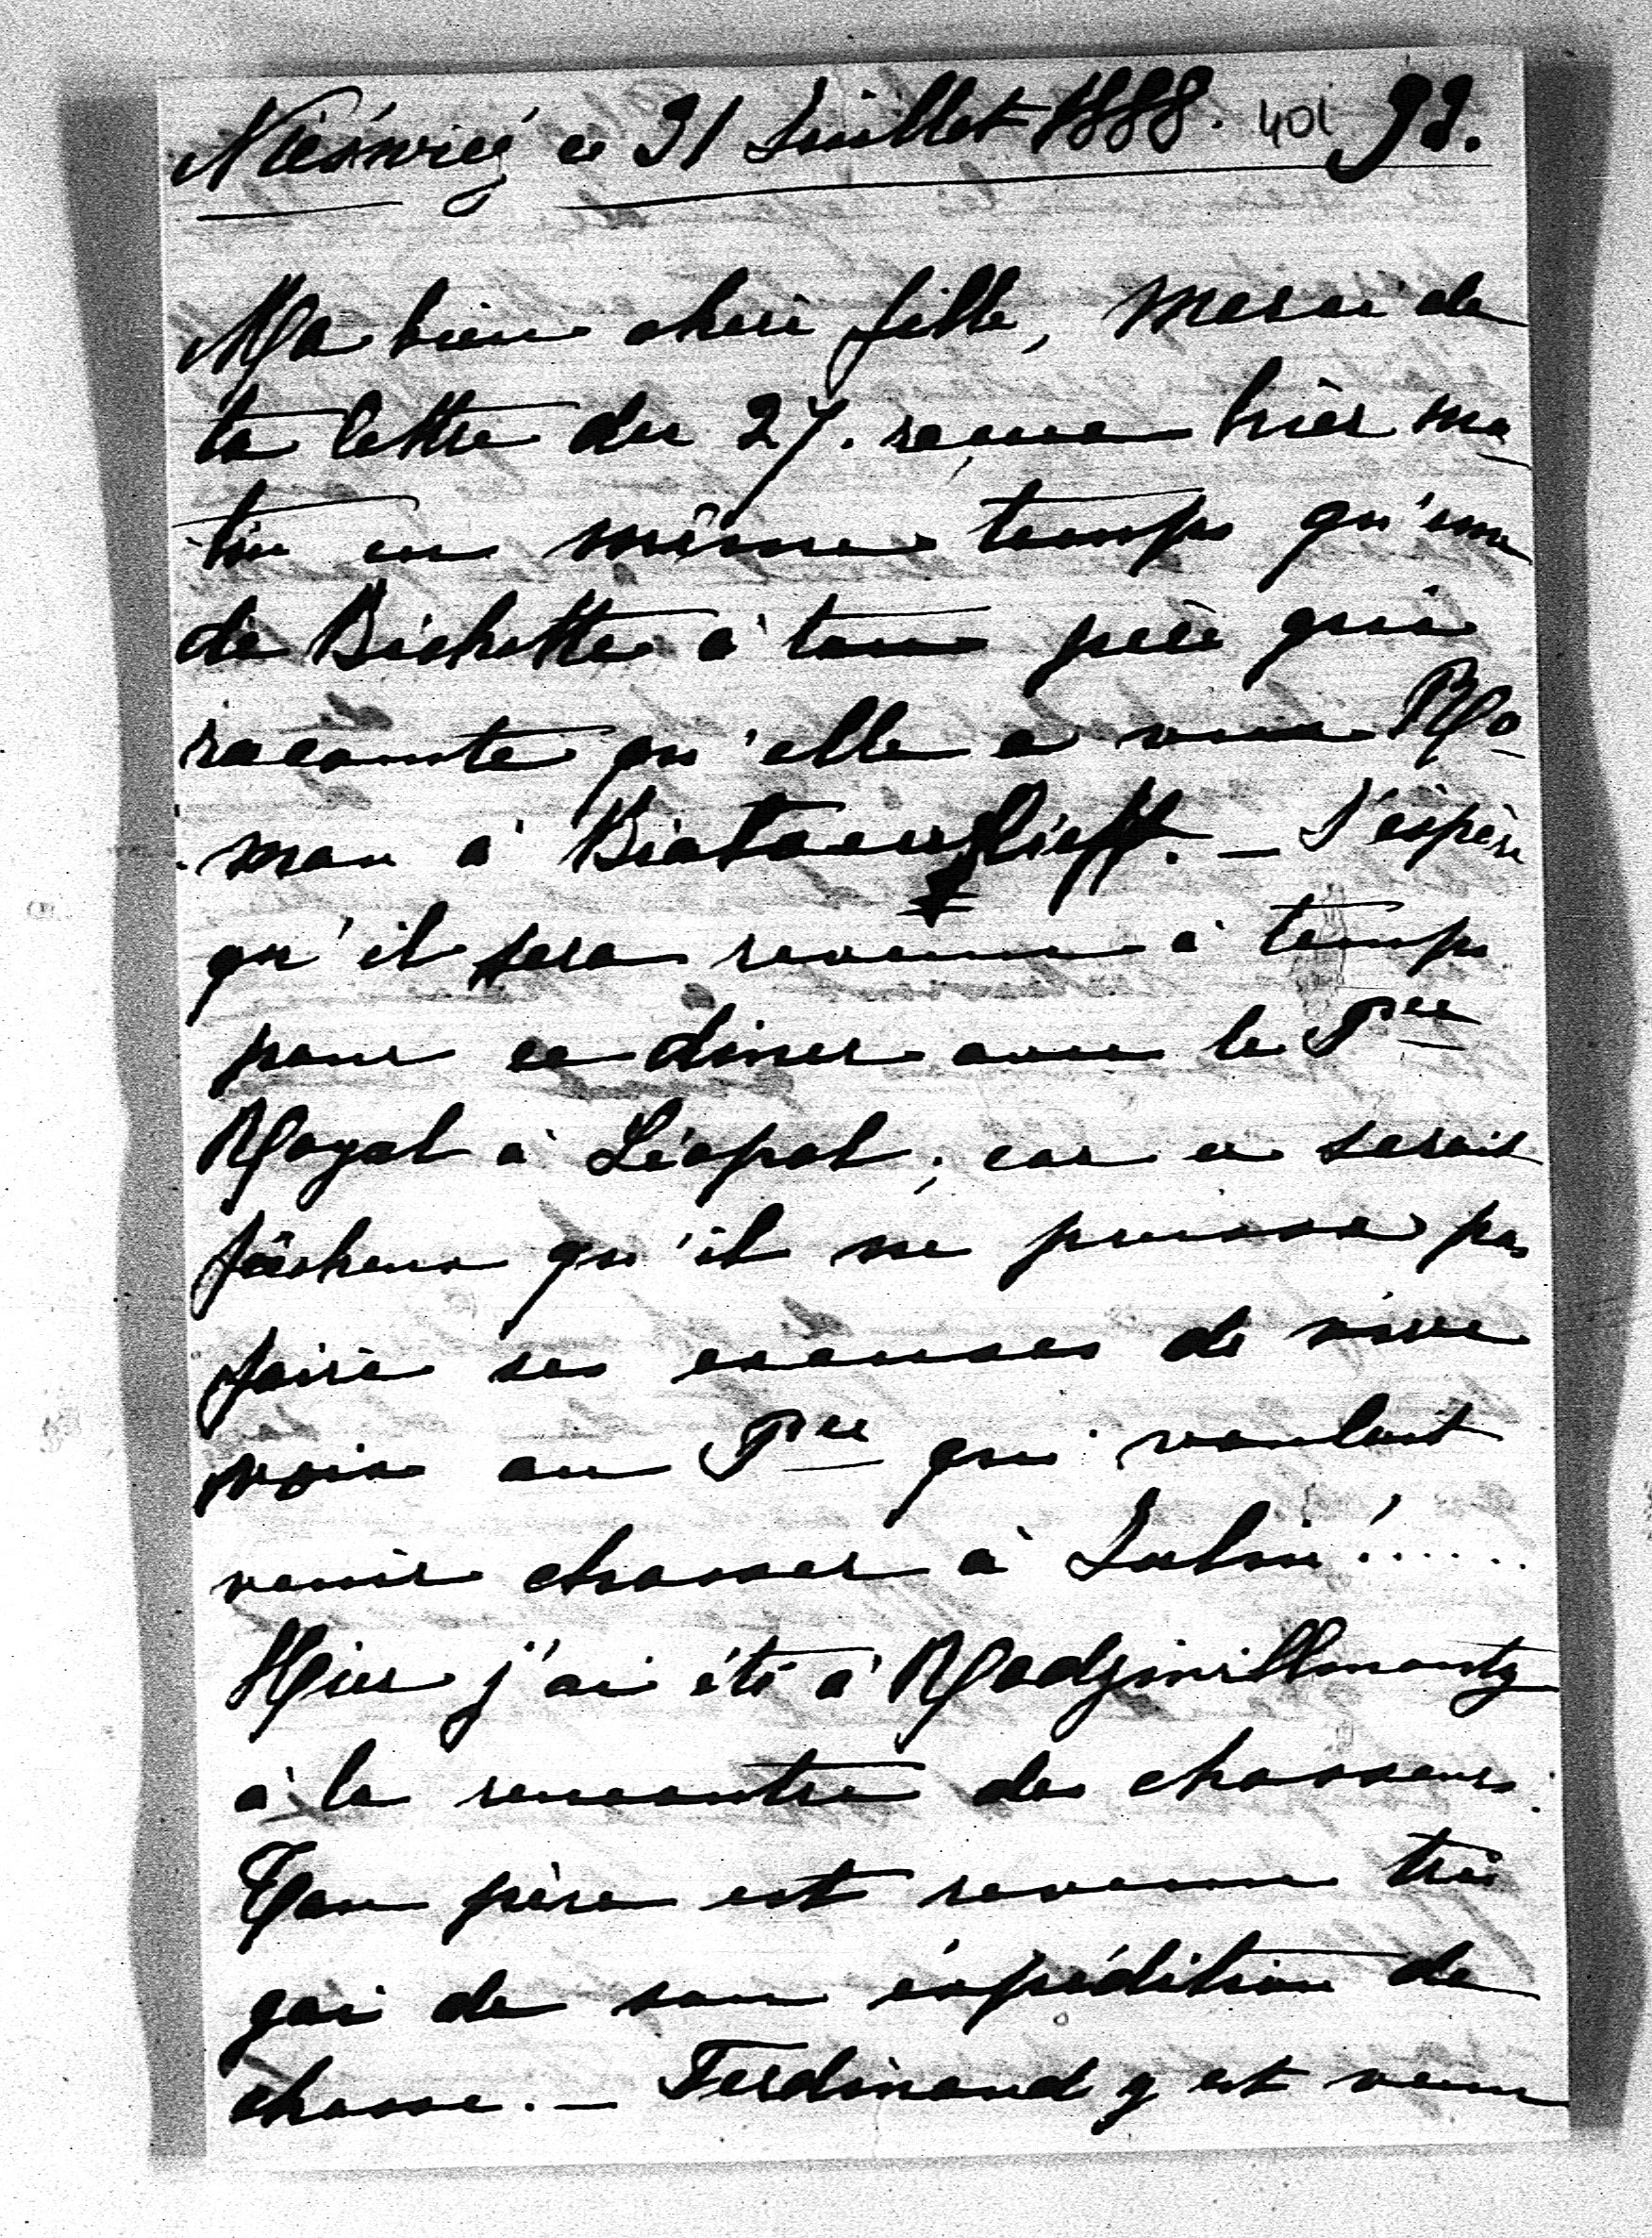 Nieśwież ce 31 Juillet 1888. 401 92.
Ma bien chère fille, merci de
ta lettre du 27. reçue hier ma
tin en même temps qu'une
de Bichette à ton père qui
raconte qu'elle a vue Ro
man à Biała . — J'espère
qu'il sera revenu à temps
pour ce diner avec le Pce
Royal à Léopol, car ce serait
fâcheux qu'il ne puisse pas
faire ses excuses de vive
voix au Pce qui voulait
venir chasser à Julin!......
Hier j'ai été à Radziwillmonty
à la rencontre des chasseurs.
Ton père est revenu très
gai de son éxpédition de
chasse. — Ferdinand y est venu